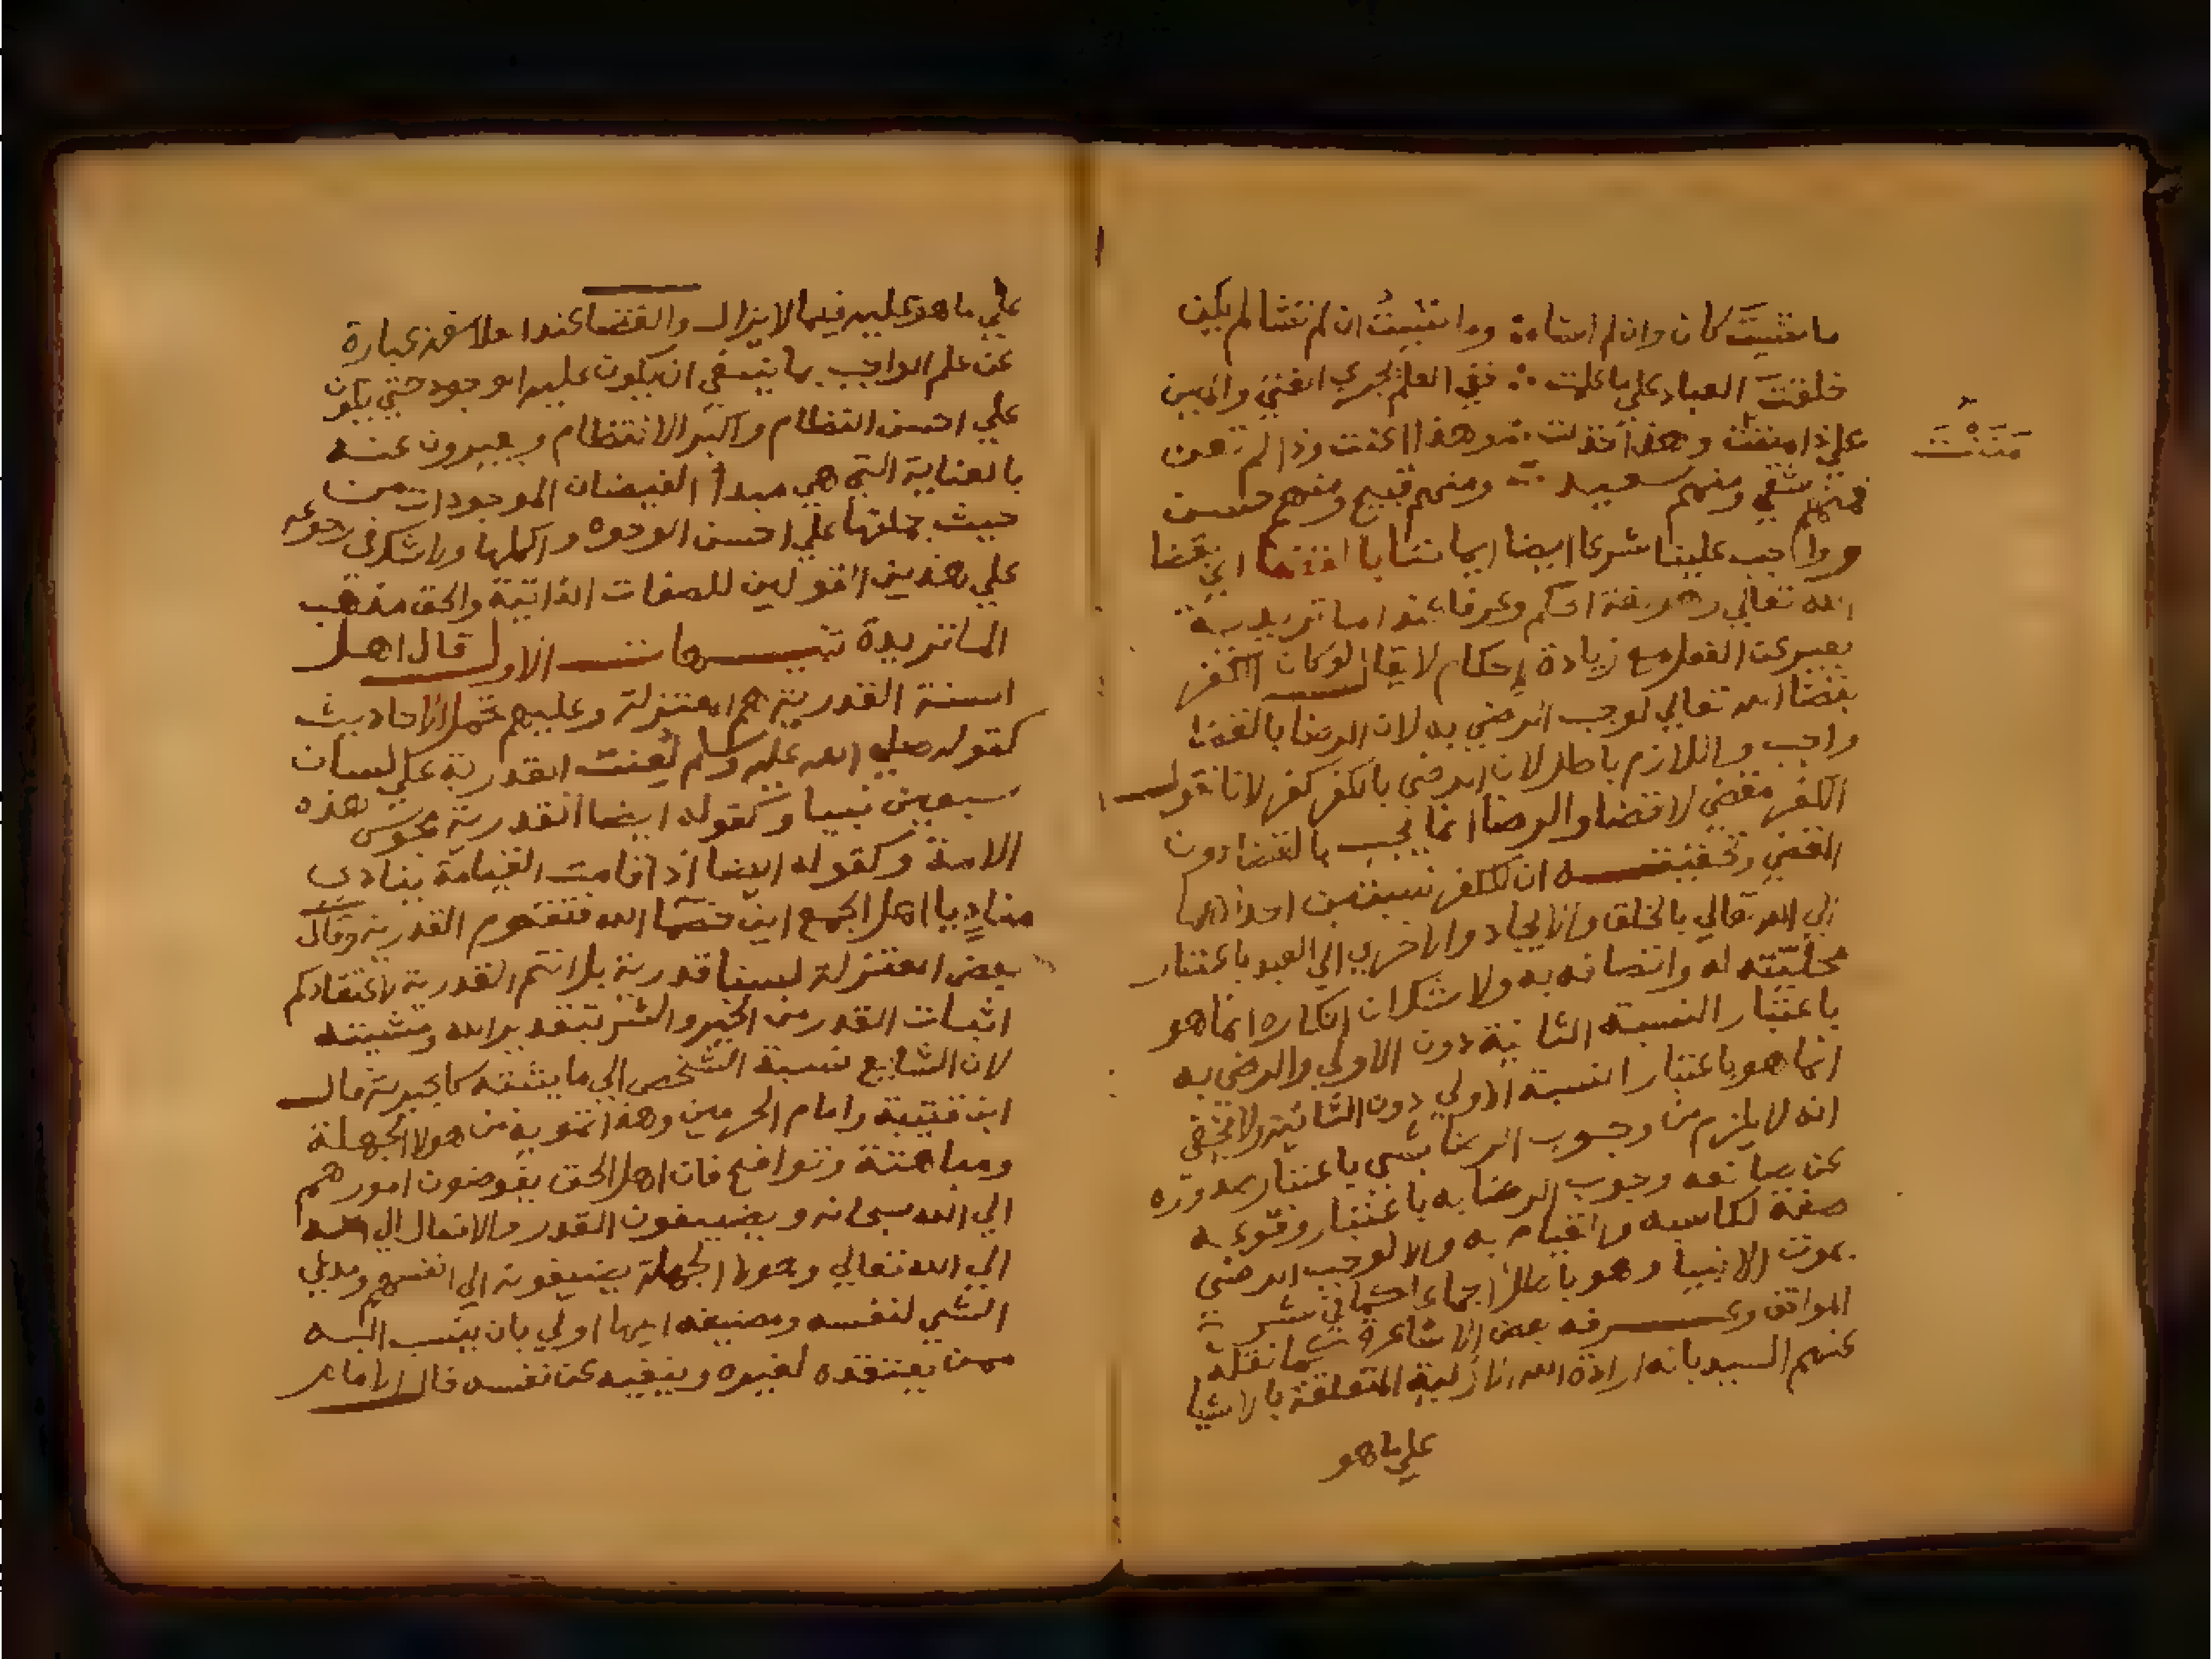 ما شئيتَ كان وان لم اشاء وما شئيتُ ان لم تشا لم يكن
خلقتَ العباد علي ما علمت ففي العلم يجري الفتي والمسن
علي ذا مننت وهذا خذلت وهذا اعنت وذا لم تعن
مَنَنْتَ
فمنهم شقي ومنهم سعيد ومنهم قبيح ومنهم حسن
وواجب علينا شرعا ايضا ايماننا بالقضا اي بقضا
الله تعالي وهو لغة الحكم وعرفا عند الماتريدية
يعبر عن الفعل مع زيادة إحكام لا يقال لو كان الكفر
بقضا الله تعالي لوجب الرضي به لان الرضا بالقضا
واجب واللازم باطل لان الرضي بالكفر كفر لانا نقول
الكفر مقضي لا قضا والرضا انما يجب بالقضا دون
المقضي وتحقيقه ان للكفر نسبتين احداهما
الي الله تعالي بالخلق والايجاد والاخري الي العبد باعتبار
محليّته له واتصافه به ولا شك ان انكاره انما هو
باعتبار النسبة الثانية دون الاولي والرضي به
انما هو باعتبار النسبة الاولي دون الثانية ولا يخفي
انه لا يلزم من وجوب الرضا بشي باعتبار صدوره
عن صانعه وجوب الرضا به باعتبار وقوعه
صفة لكاسبه والقيام به والا لوجب الرضي
بموت الانبيا وهو باطل اجماعا كما في شرح
المواقف وعرفه بعض الاشاعرة كما نقله
عنهم السيد بانه ارادة الله الازلية المتعلقة بالاشيا
علي ما هو
علي ما هو عليه فيما لا يزال والقضا عند الفلاسفة عبارة
عن علم الواجب بما ينبغي ان يكون عليه الوجود حتي يكون
علي احسن النظام واكبر الانتظام ويعبرون عنه
بالعناية التي هي مبدأ الفيضان الموجودات من
حيث جملتها علي احسن الوجوه واكملها ولا شك في رجوعه
علي هذين القولين للصفات الذاتية والحق مذهب
الماتريدة تنبيهات الاول قال اهل
السنة القدرية هم المعتزلة وعليهم تحمل الاحاديث
كقوله صلي الله عليه وسلم لُعنت القدرية علي لسان
سبعين نبيا وكقوله ايضا القدرية مجوس هذه
الامة وكقوله ايضا اذا قامت القيامة ينادي
منادٍ يا اهل الجمع اين خصما الله فتقوم القدرية وقال
بعض المعتزلة لسنا قدرية بل انتم القدرية لاعتقادكم
اثبات القدر من الخير والشر بتقدير الله ومشيته
لان الشايع نسبة الشخص الي ما يثبته كالجبرية قال
ابن قتيبة وامام الحرمين وهذا تمويه من هولا الجهلة
ومباهتة وتواقح فان اهل الحق يفوضون امورهم
الي الله سبحانه ويضيفون القدر والافعال الي الله
الي الله تعالي وهولا الجهلة يضيفونه الي انفسهم ومدعي
الشي لنفسه ومضيفه اليها اولي بان ينسب اليه
ممن يعتقده لغيره وينفيه عن نفسه قال الامام